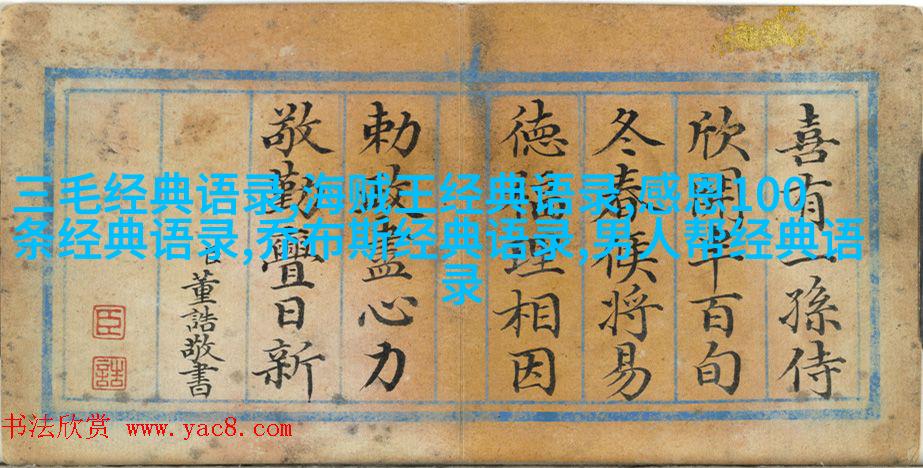 三毛经典语录,海贼王经典语录,感恩100
条经典语录,乔布斯经典语录,男人帮经典语
录
喜有一孫侍
欣開半百旬
冬春候將易
德福理相因
勅政盡心力
敬勤亹日新
臣董誥敬書
臣
誥
书法欣赏 www.yac8.com